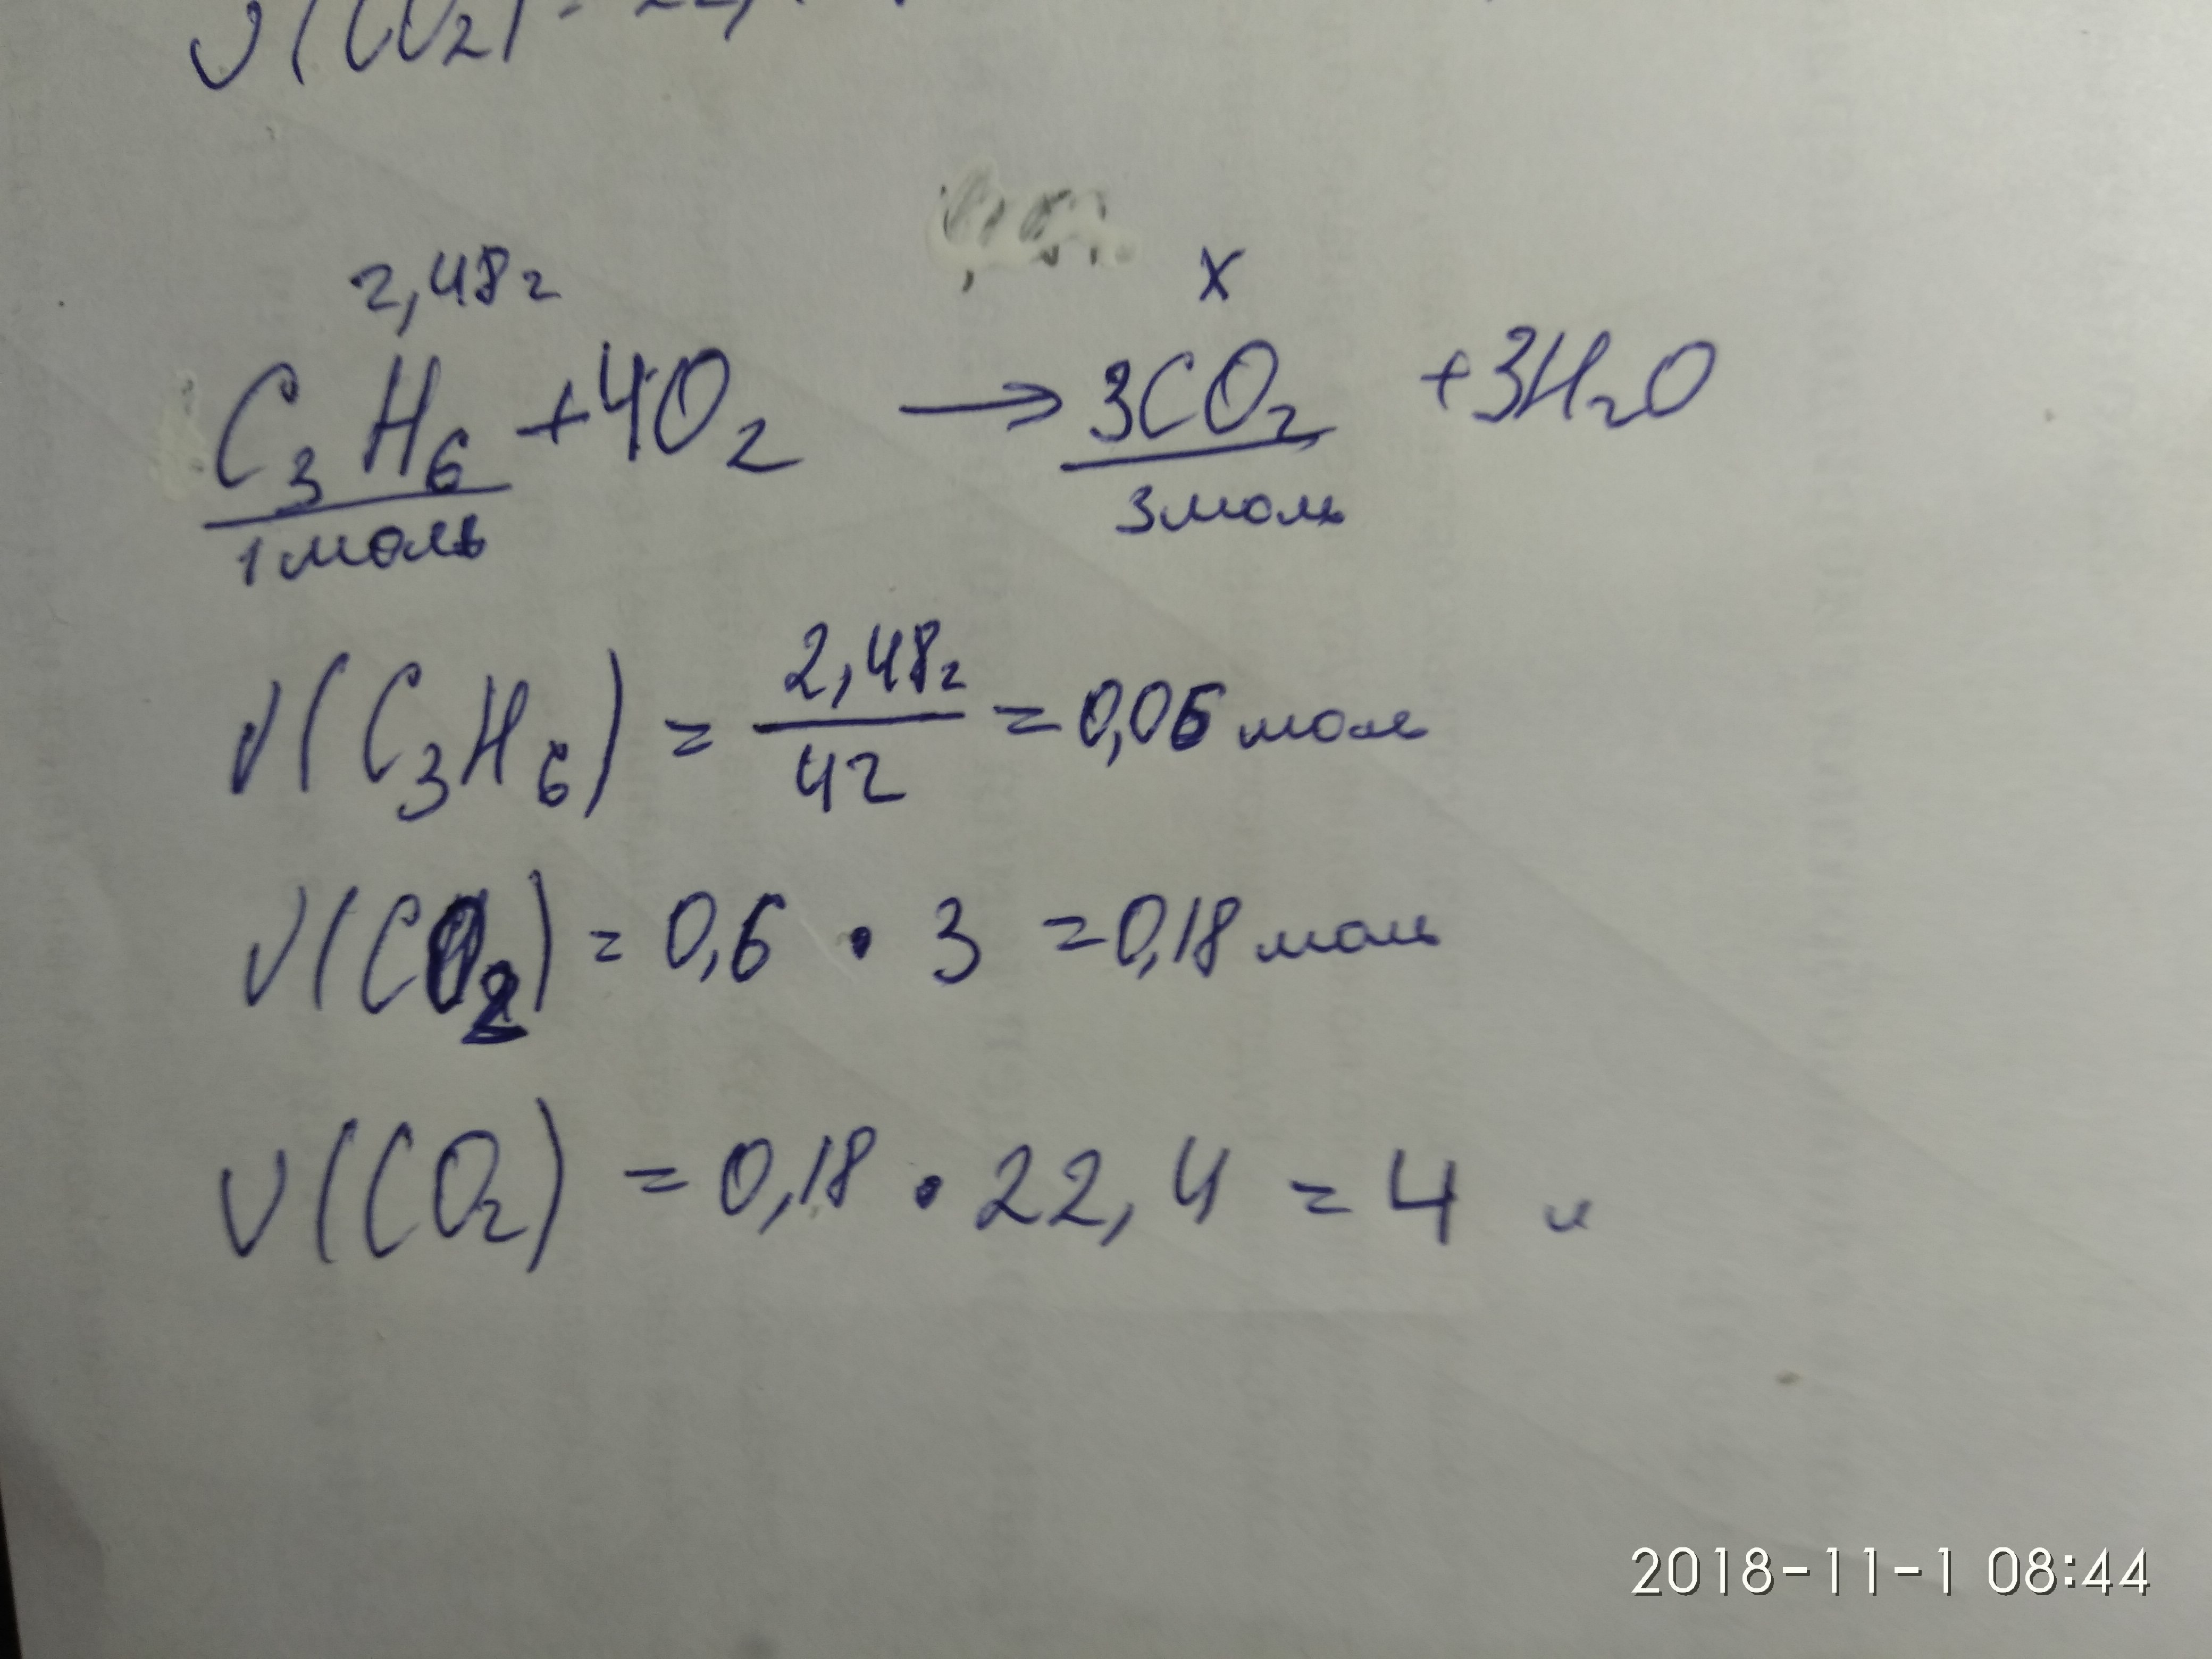 V(CO2) = 22,4
2,48г
x
C3H6 + 4O2 → 3CO2 + 3H2O
1 моль
3 моль
ν(C3H6) = 2,48г / 42 = 0,06 моль
ν(CO2) = 0,6 · 3 = 0,18 моль
V(CO2) = 0,18 · 22,4 = 4 л
2018-11-1 08:44